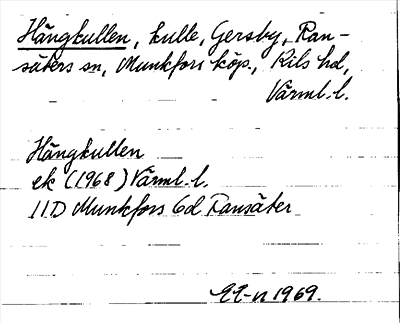 Hängkullen, kulle, Gersby, Ran-
säters sn, Munkfors köp., Kils hd,
Värml. l.
Hängkullen
ek (1968) Värml. l.
11D Munkfors 6d Ransäter
1969.